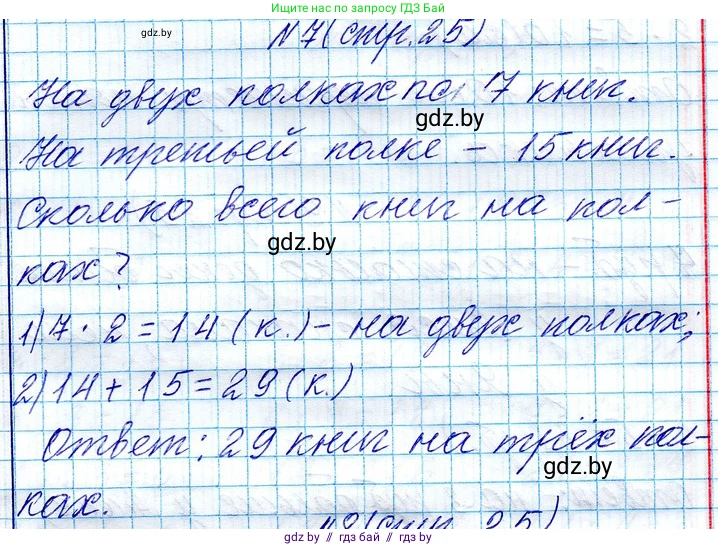 Ищите нас по запросу ГДЗ Бай
gdz.by
№7(стр.25)
На двух полках по 7 книг.
gdz.by
На третьей полке - 15 книг.
Сколько всего книг на пол-
gdz.by
ках?
1) 7 · 2 = 14 (к.) - на двух полках;
2) 14 + 15 = 29 (к.)
Ответ: 29 книг на трёх пол-
gdz.by
ках.
(стр. 25)
gdz.by // гдз бай // gdz.by